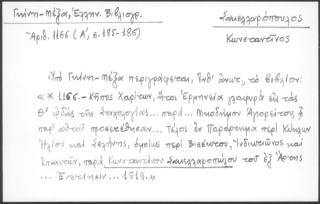 Γκίνη-Μέξα, Ἑλλην. Βιβλιογρ.
Ἀριθ. 1166 (Α', σ. 185-186)
Σακελλαρόπουλος
Κωνσταντῖνος
Ὑπὸ Γκίνη-Μέξα περιγράφεται, ἔνθ' ἀνωτ., τὸ βιβλίον:
« * 1166.- Κῆπος Χαρίτων, ἤτοι Ἑρμηνεία γλαφυρὰ εἰς τὰς
θ' ᾠδὰς τῆς στιχολογίας... παρὰ... Νικοδήμου Ἁγιορείτου, ᾗ
παρ' αὐτοῦ προσετέθησαν... Τέλος ἓν Παράρτημα περὶ Κύκλων
Ἡλίου καὶ Σελήνης, ὁμοίως περὶ Βισέκτου, Ἰνδικτιῶνος καὶ
Ἐπακτῶν, παρὰ Κωνσταντίνου Σακελλαροπούλου τοῦ ἐξ Ἄρτης
... Ἐνετίησιν... 1819.»